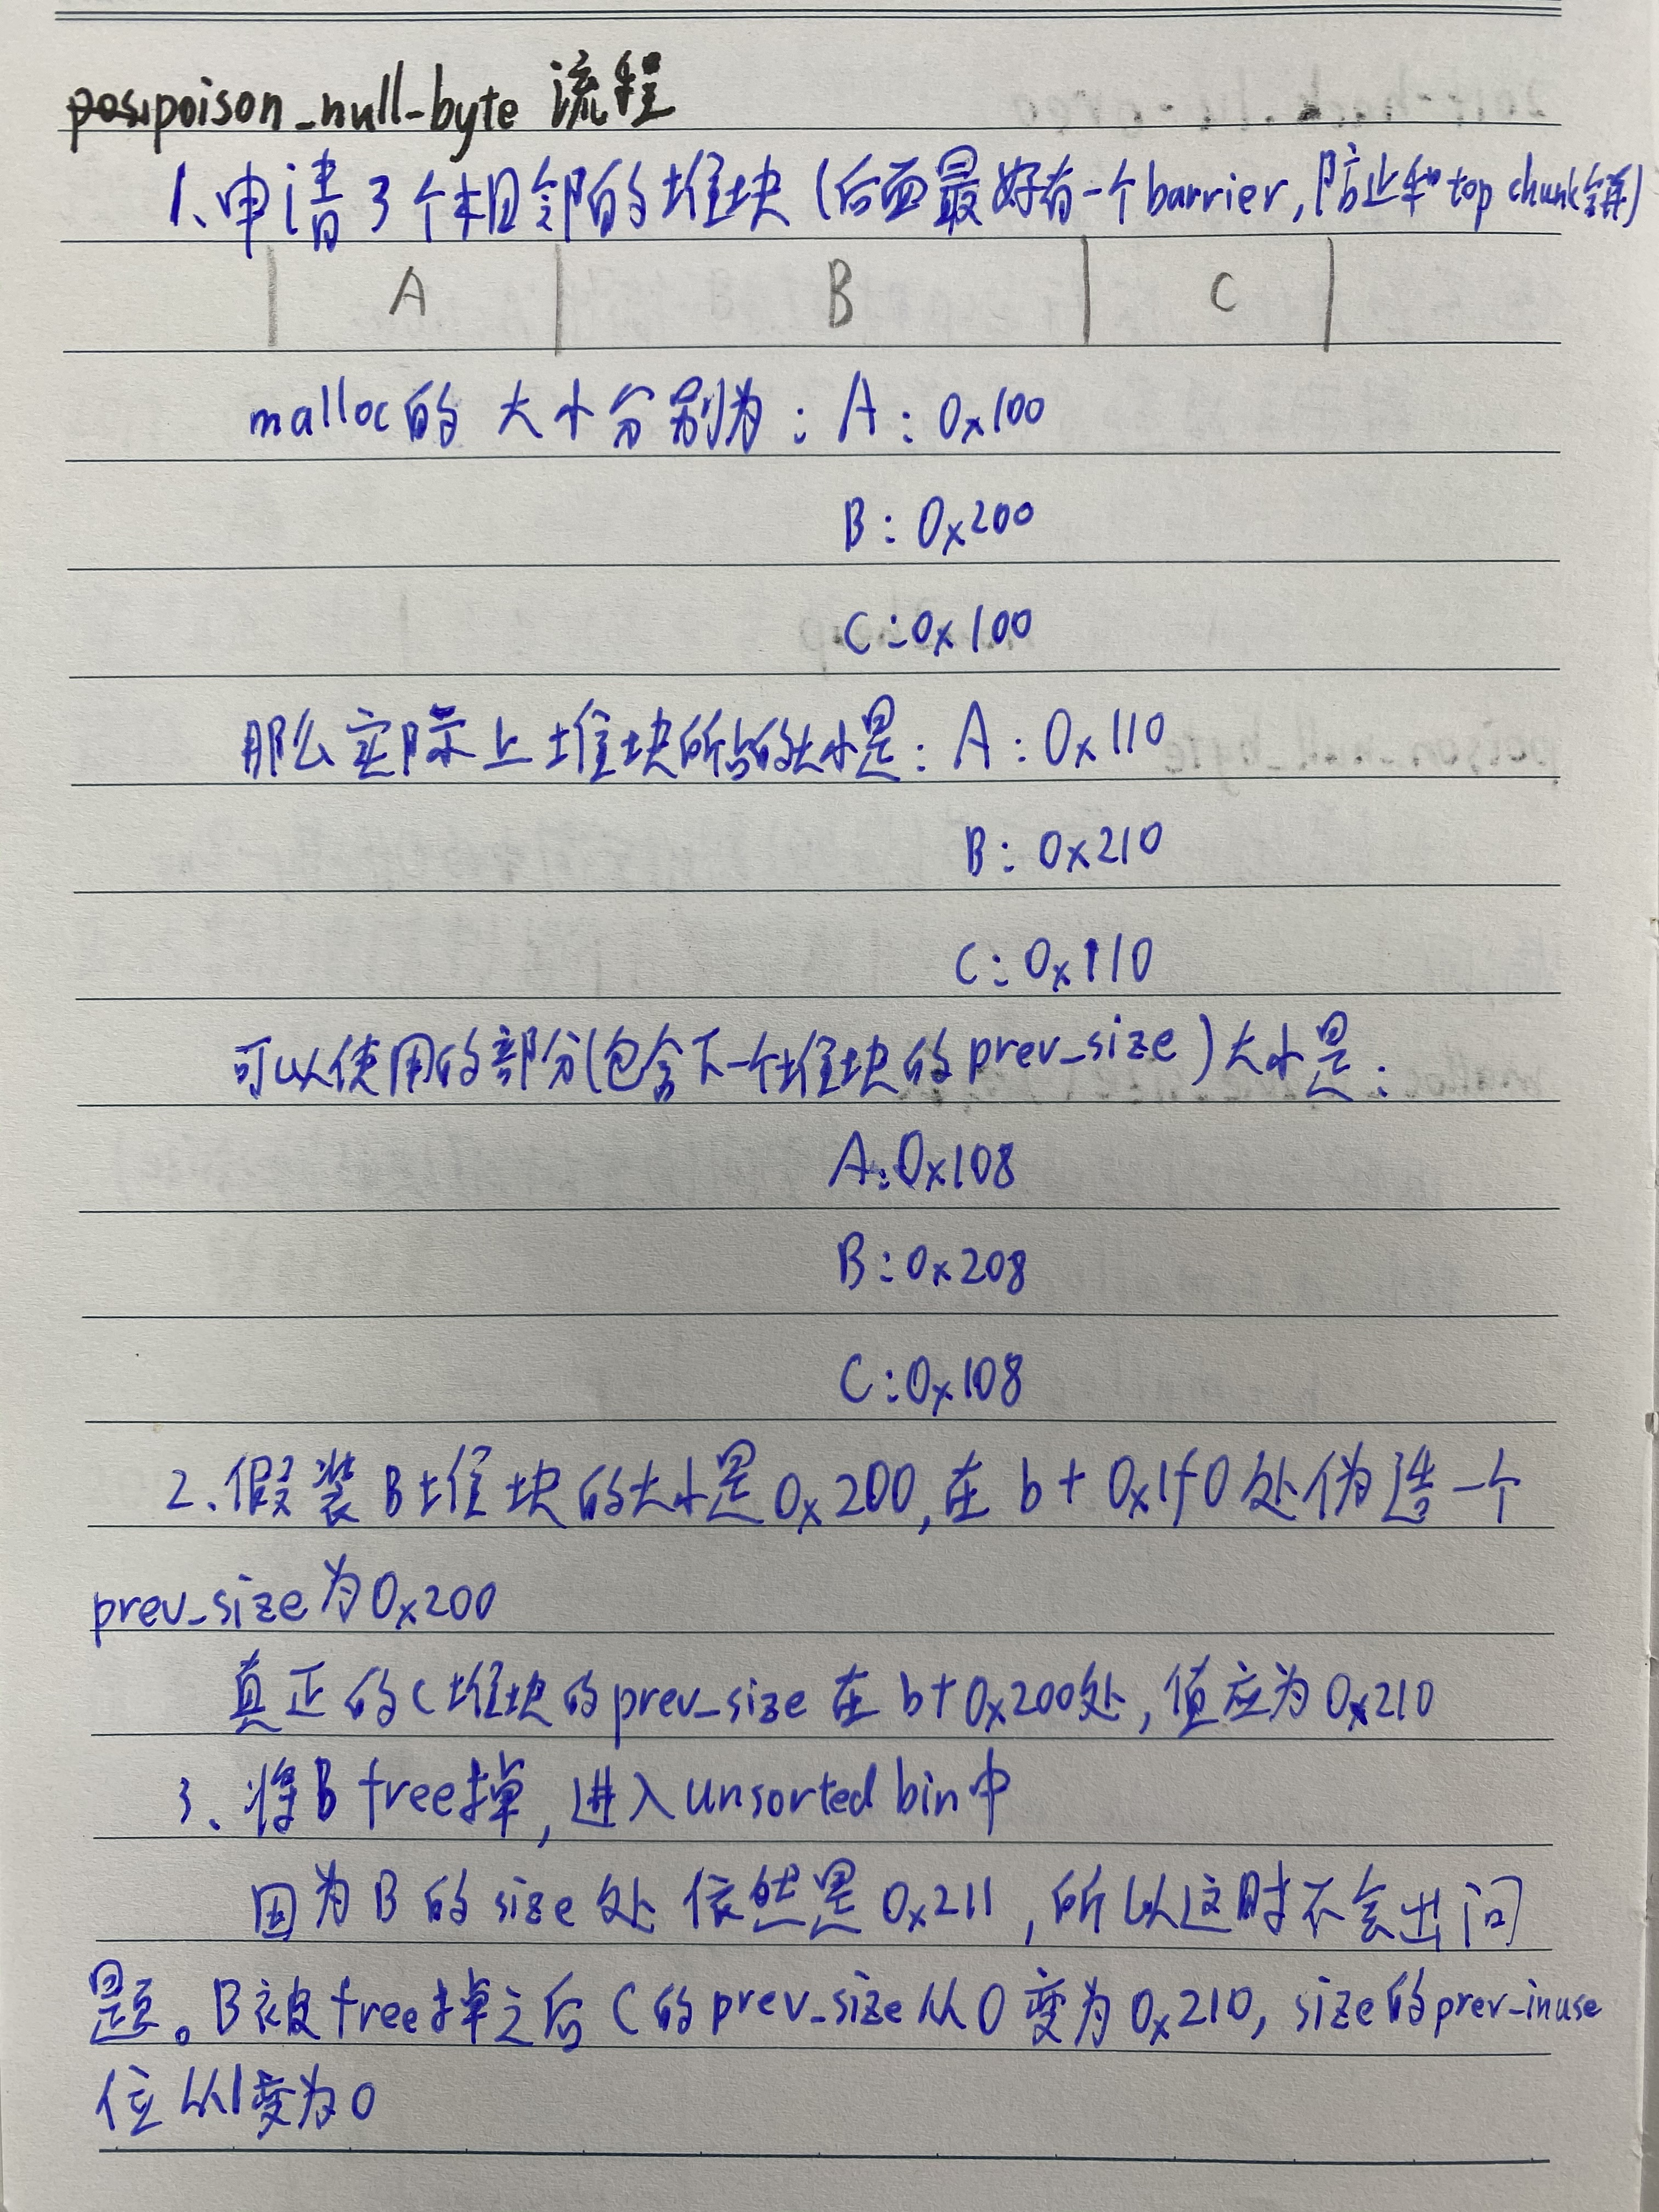 poison_null-byte 流程
1、申请3个相邻的堆块(后面最好有一个barrier,防止和top chunk合并)
A B C
malloc的大小分别为:A:0x100
B:0x200
C:0x100
那么实际上堆块所占的大小是:A:0x110
B:0x210
C:0x110
可以使用的部分(包含下一个堆块的prev_size)大小是:
A:0x108
B:0x208
C:0x108
2、假装B堆块的大小是0x200,在b+0x1f0处伪造一个
prev_size为0x200
真正的C堆块的prev_size在b+0x200处,值应为0x210
3、将B free掉,进入unsorted bin中
因为B的size处依然是0x211,所以这时不会出问
题。B被free掉之后C的prev_size从0变为0x210,size的prev-inuse
位从1变为0